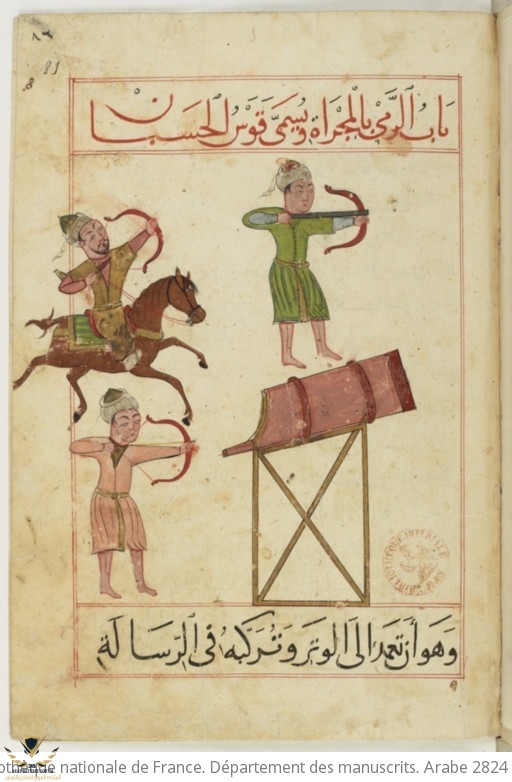 ٨٢
81
باب الرمي بالمجراة ويسمى قوس الحسبان
وهو أن تعمد الى الوتر وتركبه في الرسالة
BIBLIOTHÈQUE IMPÉRIALE
othèque nationale de France. Département des manuscrits. Arabe 2824